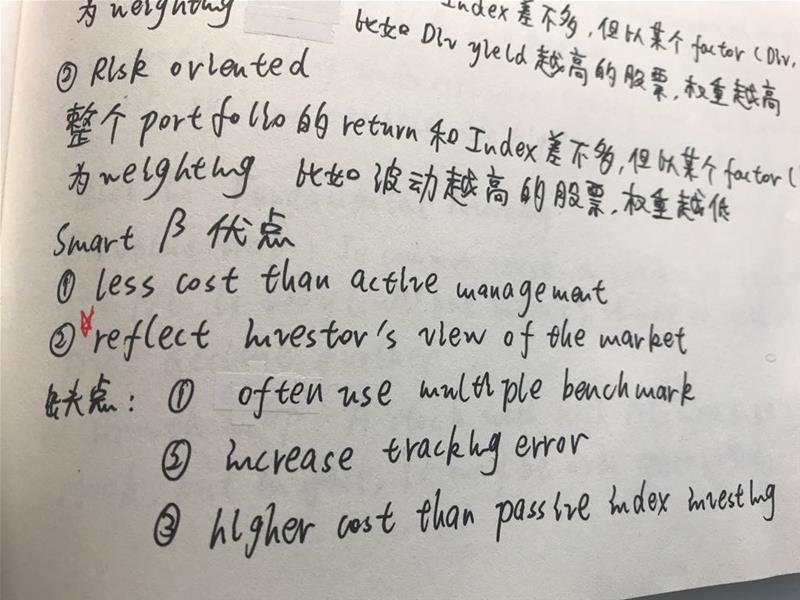 为weighting
Index差不多,但以某个factor(Div,
比如Div yield越高的股票,权重越高
② Risk oriented
整个portfolio的return和Index差不多,但以某个factor(
为weighting 比如波动越高的股票,权重越低
Smart β 优点
① less cost than active management
② reflect investor's view of the market
缺点: ① often use multiple benchmark
② increase tracking error
③ higher cost than passive index investing